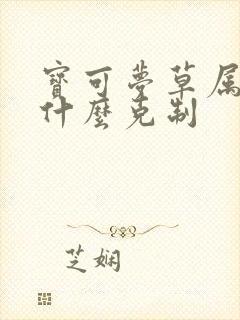 寶可夢草属
什麼克制
芝娴